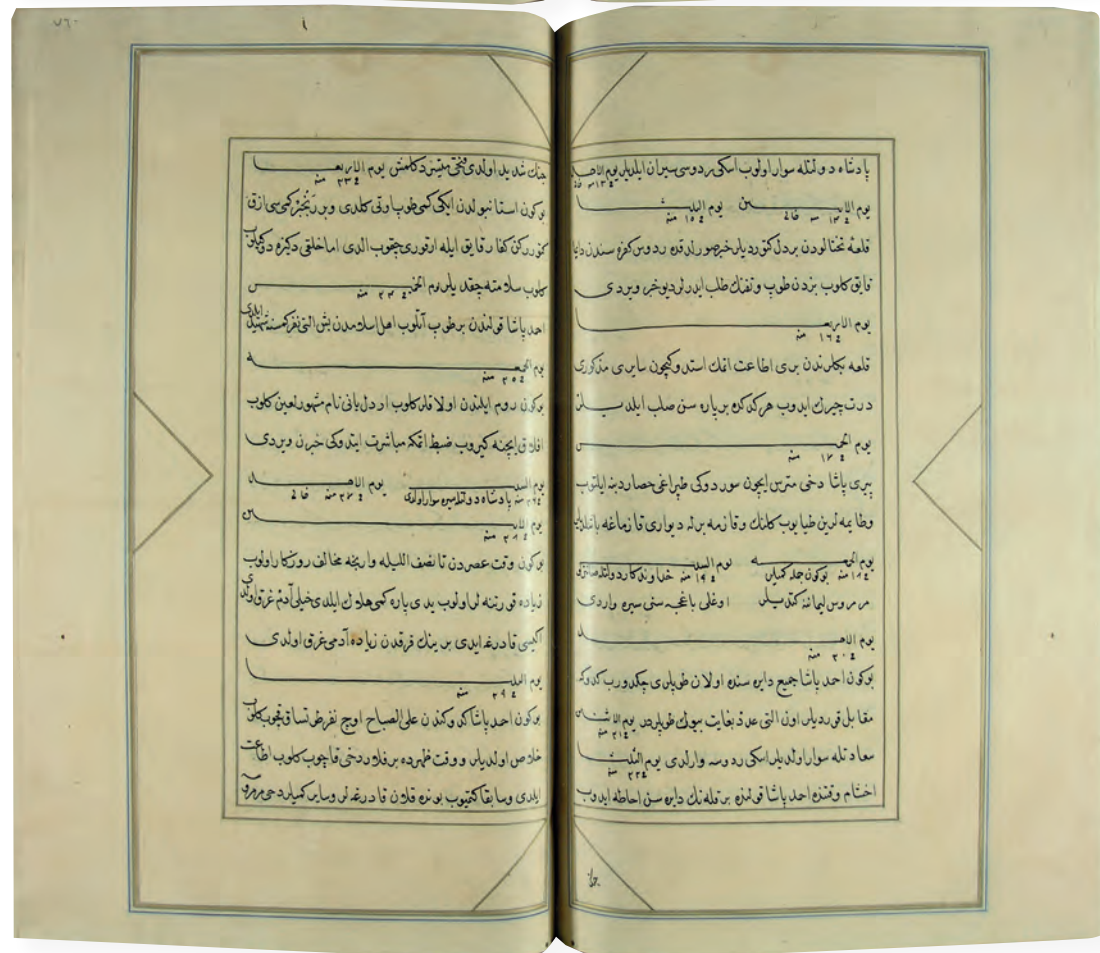 پادشاه دولتله سوار اولوب اسكی ردوسی سیران ایلدیلر یوم الاحـد
یوم الاثنـین ١٤ منه خالی یوم الثلـثا ١٥ منه
قلعه تختالودن بر دل كتوردیلر خبر صورلدقده ردوس كفره سندن دایما
قایق كلوب بزدن طوپ و تفنك طلب ایدرلر دیو خبر ویردی
یوم الاربعـا ١٦ منه
قلعه بكلرندن بری اطاعت اتمك استدوكیچون سایری مذكوری
درت چیرك ایدوب هر كدكده بر پاره سن صلب ایلدیلر
یوم الخمـیس ١٧ منه
پیری پاشا دخی مترس ایچون سوردوكی طپراغی حصار دبنه ایلتوب
و طایمه لرین طیایوب كلنك و قازمه برله دیواری قازماغه باشلدیلر
یوم الجمعـه ١٨ منه بوكون جمله كمیلر یوم السبـت ١٩ منه خداوندكار دولتله
مرمروس لیماننه كتدیلر اوغلی باغچه سنی سیره واردی
یوم الاحـد ٢٠ منه
بوكون احمد پاشا جمیع دایره سنده اولان طوپلری چكدورب كدوكه
مقابل قوردیلر اون التی عدد بغایت بیوك طوپلردر یوم الاثنـین ٢١ منه
سعادتله سوار اولدیلر اسكی ردوسه وارلدی یوم الثلـثا ٢٢ منه
اخشام وقتنده احمد پاشا قولنده بر قله نك دایره سن احاطه ایدوب
جنك
جنك شدید اولدی فتحی متیسر دكلمش یوم الاربعـا ٢٣ منه
بوكون استانبولدن ایكی كمی طوپ اوتی كلدی و بر رنجبر كمی سی ازق
كتورركن كفار قایق ایله ارقوری چقوب الدی اما خلقی دكزه دوكیلوب
كلوب سلامته چقدیلر یوم الخمـیس ٢٤ منه
احمد پاشا قولندن بر طوپ آتلوب اهل اسلامدن بش التی نفر كمسنه شهید ایلدی
یوم الجمعـه ٢٥ منه
بوكون روم ایلندن اولاقلر كلوب اردل بانی نام مشهور لعین كلوب
افلاق ایچنه كیروب ضبط اتمكه مباشرت ایتدوكی خبرن ویردی
یوم السبـت ٢٦ منه پادشاه دولتله سیره سوار اولدی یوم الاحـد ٢٧ منه خالی
یوم الاثنـین ٢٨ منه
بوكون وقت عصردن تا نصف اللیله وارنجه مخالف روزكار اولوب
زیاده قورتنه لر اولوب یدی پاره كمی هلاك ایلدی خیلی آدم غرق اولدی
اكیسی قادرغه ایدی بر بیك قرقدن زیاده آدمی غرق اولدی
یوم الثلـثا ٢٩ منه
بوكون احمد پاشا كدوكندن علی الصباح اوچ نفر طتساق قچوب كلوب
خلاص اولدیلر و وقت ظهرده بر فلار دخی قاچوب كلوب اطاعت
ایلدی و سابقا كتمیوب بونده قلان قادرغه لر و سایر كمیلر دخی